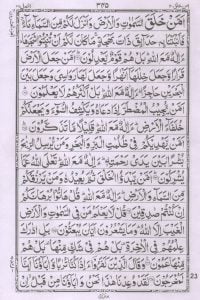 ۳۴۵
اَمَّنْ خَلَقَ السَّمٰوٰتِ وَالْاَرْضَ وَاَنْزَلَ لَكُمْ مِّنَ السَّمَآءِ مَآءً
فَاَنْۢبَتْنَا بِهٖ حَدَآئِقَ ذَاتَ بَهْجَةٍ مَا كَانَ لَكُمْ اَنْ تُنْۢبِتُوْا شَجَرَهَا
ءَاِلٰهٌ مَّعَ اللّٰهِ بَلْ هُمْ قَوْمٌ يَّعْدِلُوْنَ اَمَّنْ جَعَلَ الْاَرْضَ
قَرَارًا وَّجَعَلَ خِلٰلَهَآ اَنْهٰرًا وَّجَعَلَ لَهَا رَوَاسِيَ وَجَعَلَ بَيْنَ
الْبَحْرَيْنِ حَاجِزًا ءَاِلٰهٌ مَّعَ اللّٰهِ بَلْ اَكْثَرُهُمْ لَا يَعْلَمُوْنَ
اَمَّنْ يُّجِيْبُ الْمُضْطَرَّ اِذَا دَعَاهُ وَيَكْشِفُ السُّوْٓءَ وَيَجْعَلُكُمْ
خُلَفَآءَ الْاَرْضِ ءَاِلٰهٌ مَّعَ اللّٰهِ قَلِيْلًا مَّا تَذَكَّرُوْنَ
اَمَّنْ يَّهْدِيْكُمْ فِيْ ظُلُمٰتِ الْبَرِّ وَالْبَحْرِ وَمَنْ يُّرْسِلُ الرِّيٰحَ
بُشْرًۢا بَيْنَ يَدَيْ رَحْمَتِهٖ ءَاِلٰهٌ مَّعَ اللّٰهِ تَعٰلَى اللّٰهُ عَمَّا
يُشْرِكُوْنَ اَمَّنْ يَّبْدَؤُا الْخَلْقَ ثُمَّ يُعِيْدُهٗ وَمَنْ يَّرْزُقُكُمْ
مِّنَ السَّمَآءِ وَالْاَرْضِ ءَاِلٰهٌ مَّعَ اللّٰهِ قُلْ هَاتُوْا بُرْهَانَكُمْ
اِنْ كُنْتُمْ صٰدِقِيْنَ قُلْ لَّا يَعْلَمُ مَنْ فِي السَّمٰوٰتِ وَالْاَرْضِ
الْغَيْبَ اِلَّا اللّٰهُ وَمَا يَشْعُرُوْنَ اَيَّانَ يُبْعَثُوْنَ بَلِ ادّٰرَكَ
عِلْمُهُمْ فِي الْاٰخِرَةِ بَلْ هُمْ فِيْ شَكٍّ مِّنْهَا بَلْ هُمْ
مِّنْهَا عَمُوْنَ وَقَالَ الَّذِيْنَ كَفَرُوْٓا ءَاِذَا كُنَّا تُرٰبًا وَّاٰبَآؤُنَآ اَئِنَّا
لَمُخْرَجُوْنَ لَقَدْ وُعِدْنَا هٰذَا نَحْنُ وَاٰبَآؤُنَا مِنْ قَبْلُ اِنْ